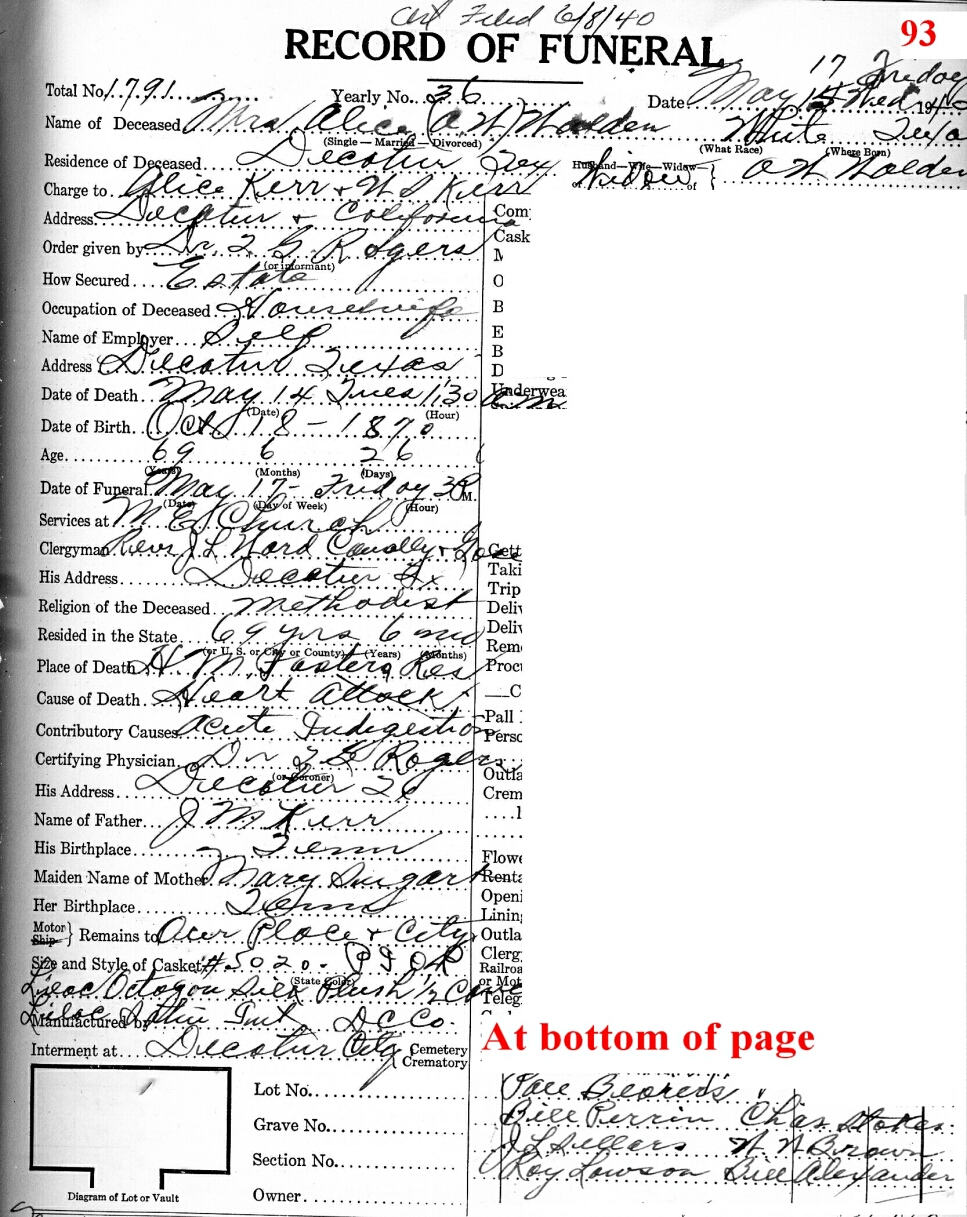 Crt Filed 6/8/40
93
RECORD OF FUNERAL
17 Friday
Total No. 1791 Yearly No. 36 Date May 15 Wed 194
Name of Deceased Mrs Alice (O W) Walden White Texa
(Single — Married — Divorced) (What Race) (Where Born)
Residence of Deceased Decatur Tex Husband—Wife—Widow— or Widow of } O W Walden
Charge to Alice Kerr + W S Kerr
Address Decatur + California
Com
Cask
Order given by Dr T G Rogers
M
(or informant)
How Secured Estate
O
Occupation of Deceased Housewife
B
Name of Employer Self
E
B
Address Decatur Texas
D
Date of Death May 14 Tues 1:30 a.m.
Underwea
(Date) (Hour)
Date of Birth Oct 18 - 1870
Age 69 6 26
(Years) (Months) (Days)
Date of Funeral May 17 - Friday 3 P.M.
(Date) (Day of Week) (Hour)
Services at M E Church
Clergyman Revs J L Ward Conally +
Gett
His Address Decatur Tx
Taki
Trip
Religion of the Deceased Methodist
Deliv
Resided in the State 69 yrs 6 mo
Deliv
Rem
(or U. S. or City or County) (Years) (Months)
Place of Death H M Fosters Res
Procu
Cause of Death Heart Attack
—C
Contributory Causes Acute Indigestion
Pall
Perso
Certifying Physician Dr T G Rogers
(or Coroner)
Outla
His Address Decatur Tx
Crem
Name of Father J M Kerr
His Birthplace Tenn
Flowe
Maiden Name of Mother Mary Sugart
Renta
Her Birthplace Tenn
Openi
Lining
Motor Ship } Remains to Our Place + City
Outla
Size and Style of Casket #5020 - P & O R
Clerg
Railroa
(State Color)
Lilac Octagon Silk Plush 1/2 Couch
or Mot
Teleg
Manufactured by Lilac Satin Int D C Co.
Interment at Decatur City Cemetery Crematory
At bottom of page
Lot No.
Pall Bearers
Grave No.
Bill Perrin Chas Stokes
J L Sellars W N Brown
Section No.
Roy Lawson Bill Alexander
Diagram of Lot or Vault
Owner